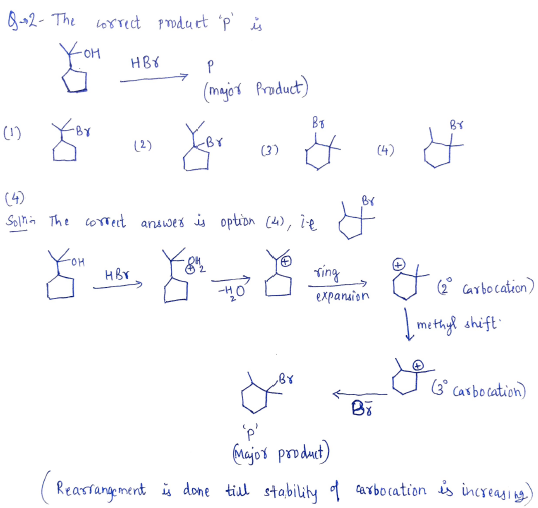 Q→2- The correct product 'p' is
OH
HBr
P
(major Product)
(1) Br
(2) Br
(3) Br
(4) Br
(4)
Solⁿ:- The correct answer is option (4), i.e Br
OH HBr ⊕OH2 -H2O ⊕ ring expansion ⊕ (2° carbocation)
methyl shift.
Br Br⁻ ⊕ (3° carbocation)
'p'
(Major product)
(Rearrangement is done till stability of carbocation is increasing)